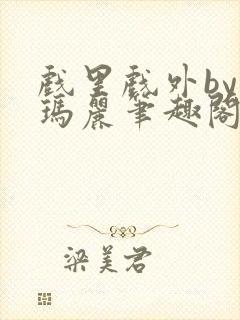 戲里戲外by
瑪麗筆趣閣
梁美君